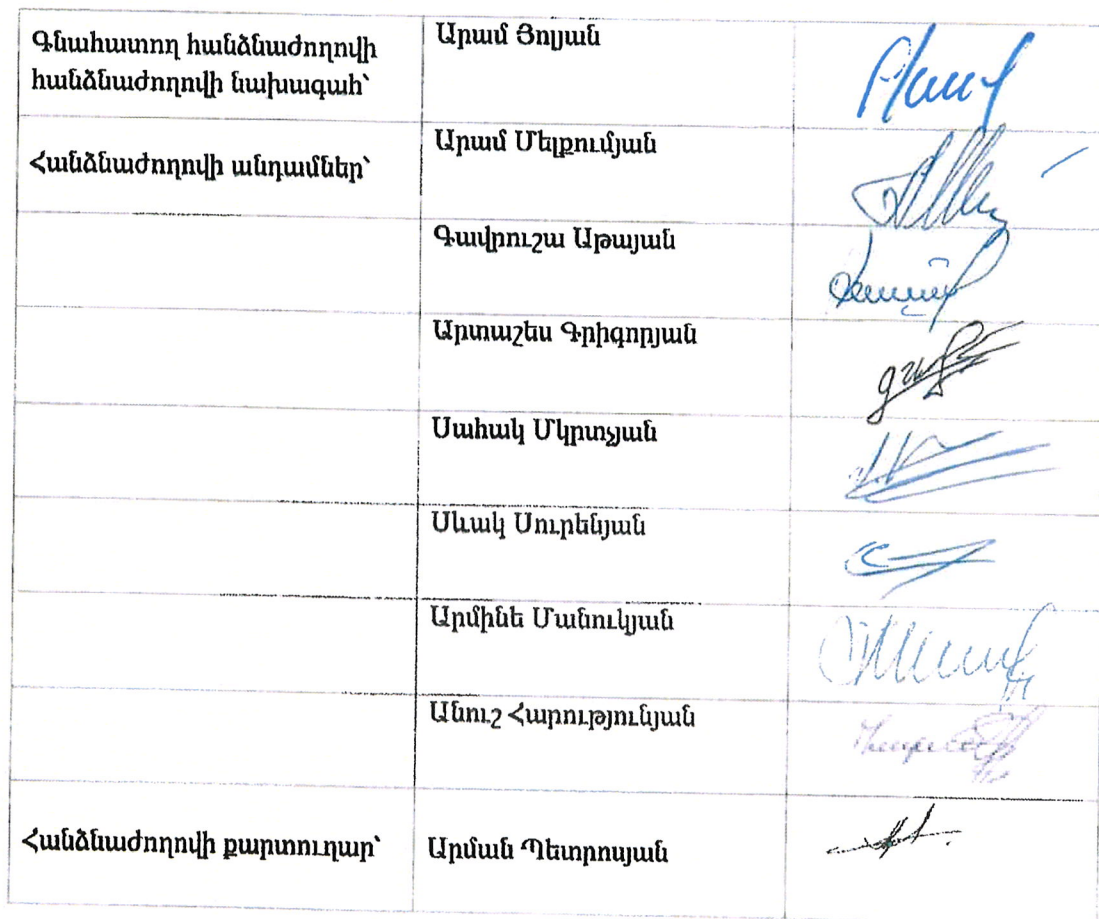 Գնահատող հանձնաժողովի
հանձնաժողովի նախագահ՝
Արամ Յոլյան
Հանձնաժողովի անդամներ՝
Արամ Մելքումյան
Գավրուշա Աթայան
Արտաշես Գրիգորյան
Սահակ Մկրտչյան
Սևակ Սուրենյան
Արմինե Մանուկյան
Անուշ Հարությունյան
Հանձնաժողովի քարտուղար՝
Արման Պետրոսյան